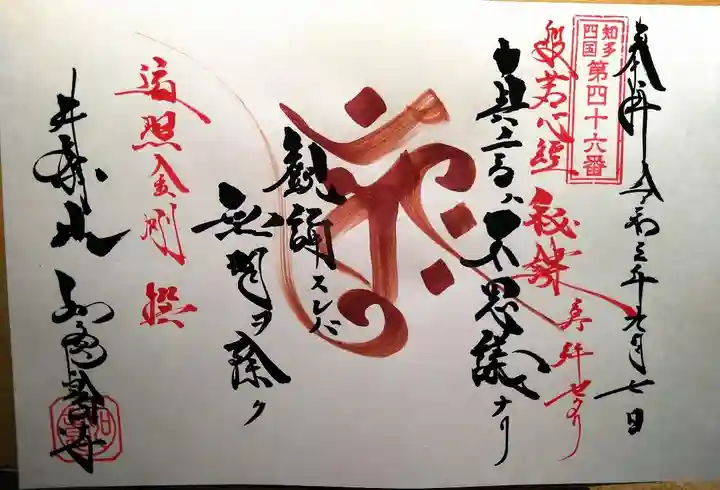 奉拝 令和三年九月七日
知多
四国
第四十六番
般若心経 秘鍵
真言ハ不思議ナリ
観誦スレバ
無明ヲ除ク
遍照金剛 撰
井際山 如意輪寺